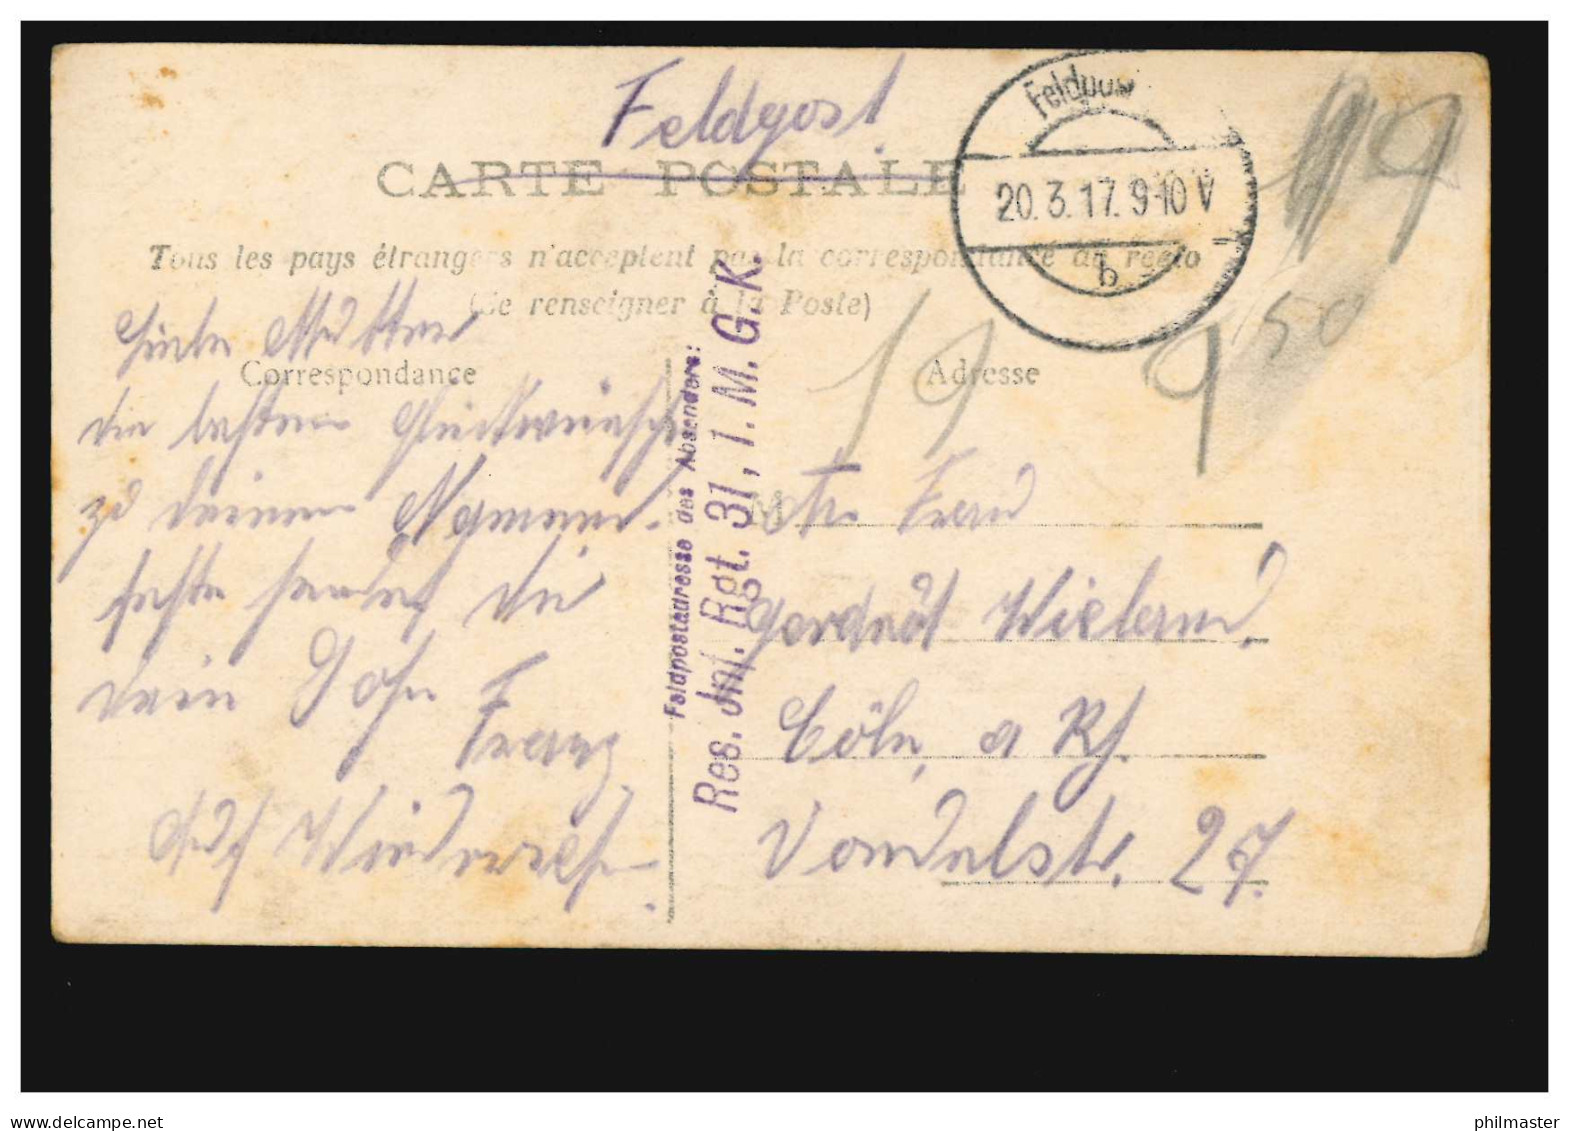 Feldpost
CARTE POSTALE
Feldpost
20.3.17. 9-10 V
b
Tous les pays étrangers n'acceptent pas la correspondance au recto
(Se renseigner à la Poste)
Correspondance
Adresse
Liebe Mutter
die besten Glückwünsche
zu deinem Namens-
feste sendet dir
dein Sohn
Franz
Auf Wiederseh
Feldpostadresse des Absenders:
Res. Inf. Rgt. 31, 1. M. G. K.
19
9
50
M
Frau
Wieland.
Cöln, a Rh.
Vondelstr. 27.
philmaster